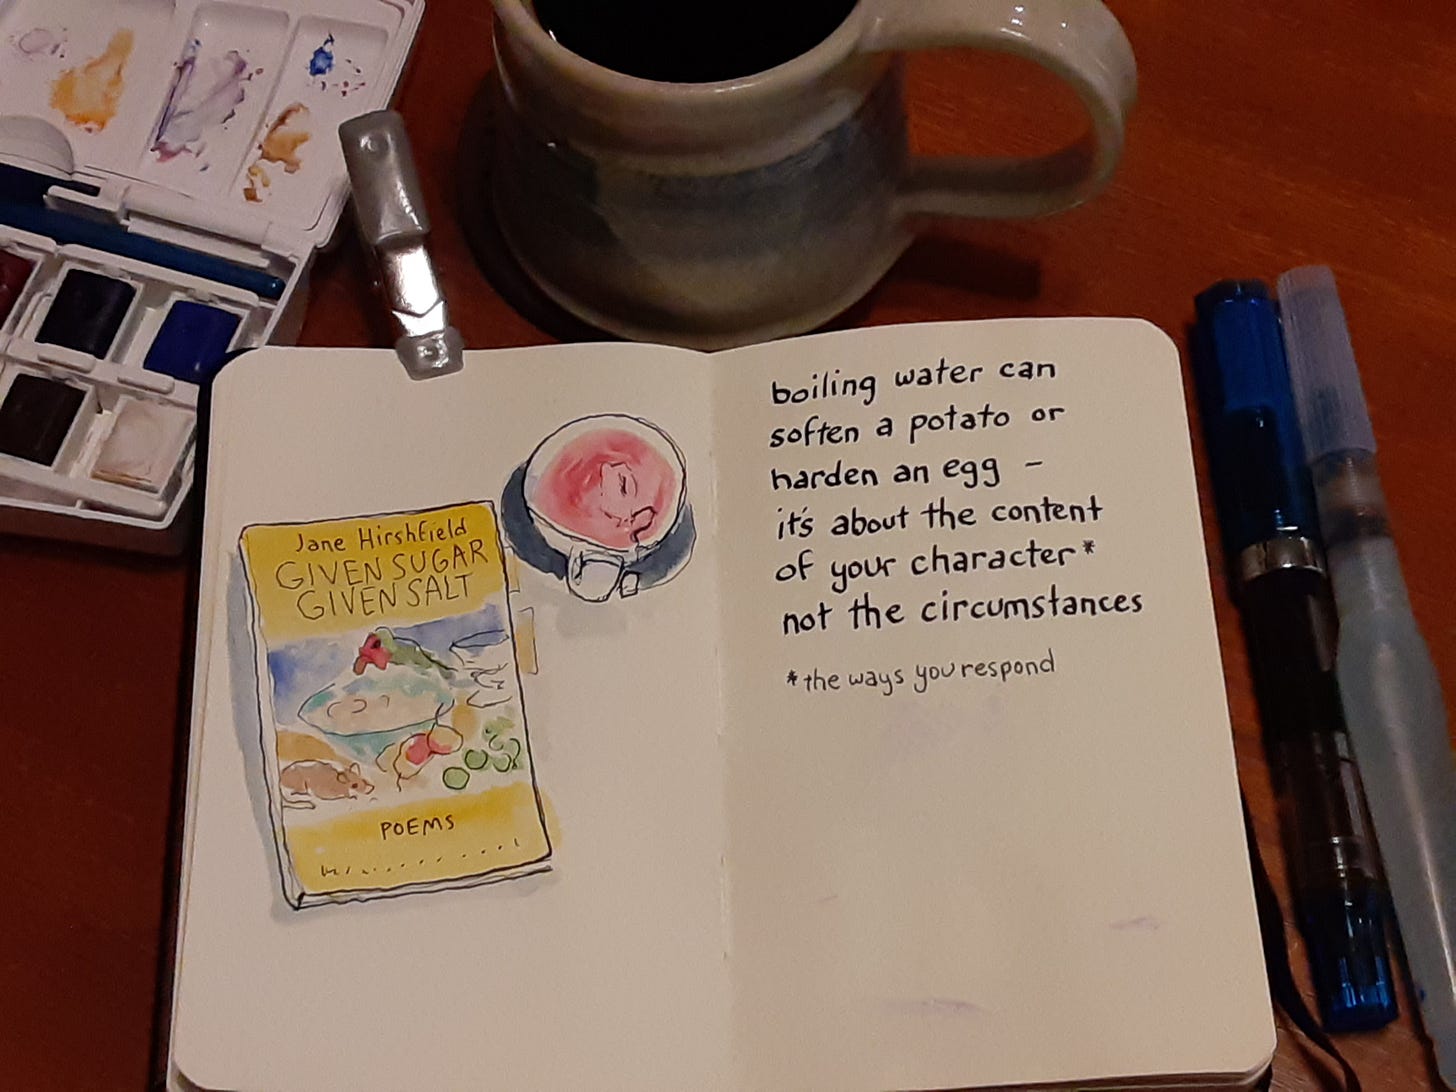 Jane Hirshfield
GIVEN SUGAR
GIVEN SALT
POEMS
boiling water can
soften a potato or
harden an egg –
it's about the content
of your character*
not the circumstances
*the ways you respond